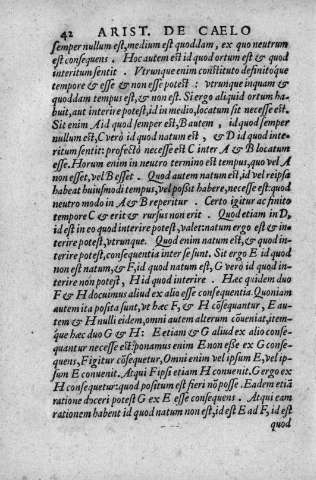 42 ARIST. DE CAELO
semper nullum est, medium est quoddam, ex quo neutrum
est consequens. Hoc autem est id quod ortum est & quod
interitum sentit. Vtrunque enim constituto definitoque
tempore & esse & non esse potest: vtrunque inquam &
quoddam tempus est, & non est. Si ergo aliquid ortum ha-
buit, aut interire potest, id in medio, locatum sit necesse est.
Sit enim A id quod semper est, B autem, id quod semper
nullum est, C vero id quod natum est, & D id quod inte-
ritum sentit: profectò necesse est C inter A & B locatum
esse. Horum enim in neutro termino est tempus, quo vel A
non esset, vel B esset. Quod autem natum est, id vel reipsa
habeat huiusmodi tempus, vel possit habere, necesse est: quod
neutro modo in A & B reperitur. Certo igitur ac finito
tempore C & erit & rursus non erit. Quod etiam in D,
id est in eo quod interire potest, valet: natum ergo est & in-
terire potest, vtrunque. Quod enim natum est, & quod in-
terire potest, consequentia inter se sunt. Sit ergo E id quod
non est natum, & F, id quod natum est, G verò id quod in-
terire non potest, H id quod interire. Hæc quidem duo
F & H docuimus aliud ex alio esse consequentia Quoniam
autem ita posita sunt, vt hæc F, & H cõsequantur, E au-
tem & H nulli eidem, omni autem alterum cõueniat, item-
que hæc duo G & H: E etiam & G aliud ex alio conse-
quantur necesse est: ponamus enim E non eße ex G conse-
quens, F igitur cõsequetur, Omni enim vel ipsum E, vel ip-
sum F conuenit. Atqui F ipsi etiam H conuenit. G ergo ex
H consequetur: quod positum est fieri nõ posse. Eadem etiã
ratione doceri potest G ex E esse consequens. Atqui eam
rationem habent id quod natum non est, id est E ad F, id est
quod